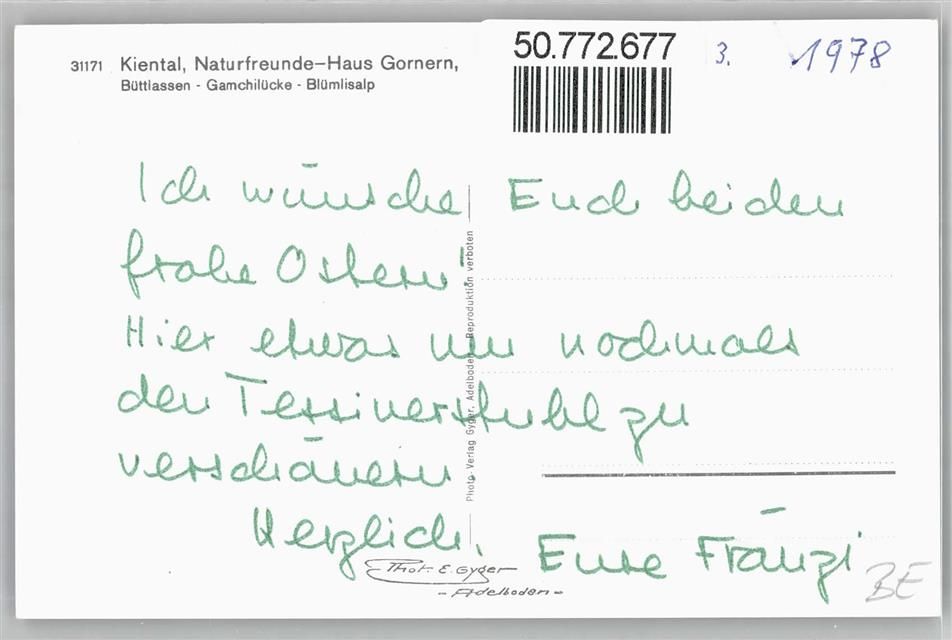 50.772.677
3.
1978
31171 Kiental, Naturfreunde-Haus Gornern,
Büttlassen - Gamchilücke - Blümlisalp
Ich wünsche Euch beiden
frohe Ostern!
Hier etwas um nochmals
den Tessinerstuhl zu
verschönern
Herzlich, Eure Fränzi
Photo-Verlag Gyger, Adelboden - Reproduktion verboten
Phot. E. Gyger
- Adelboden -
BE